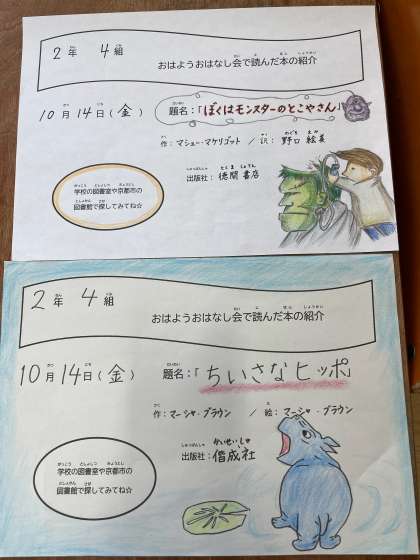 2年 4組
おはようおはなし会で読んだ本の紹介
10月14日(金) 題名:「ぼくはモンスターのとこやさん」
作:マシュー・マケリゴット / 訳:野口 絵美
出版社:徳間書店
学校の図書室や京都市の
図書館で探してみてね☆
2年 4組
おはようおはなし会で読んだ本の紹介
10月14日(金) 題名:「ちいさなヒッポ」
作:マーシャ・ブラウン / 絵:マーシャ・ブラウン
出版社:偕成社
学校の図書室や京都市の
図書館で探してみてね☆